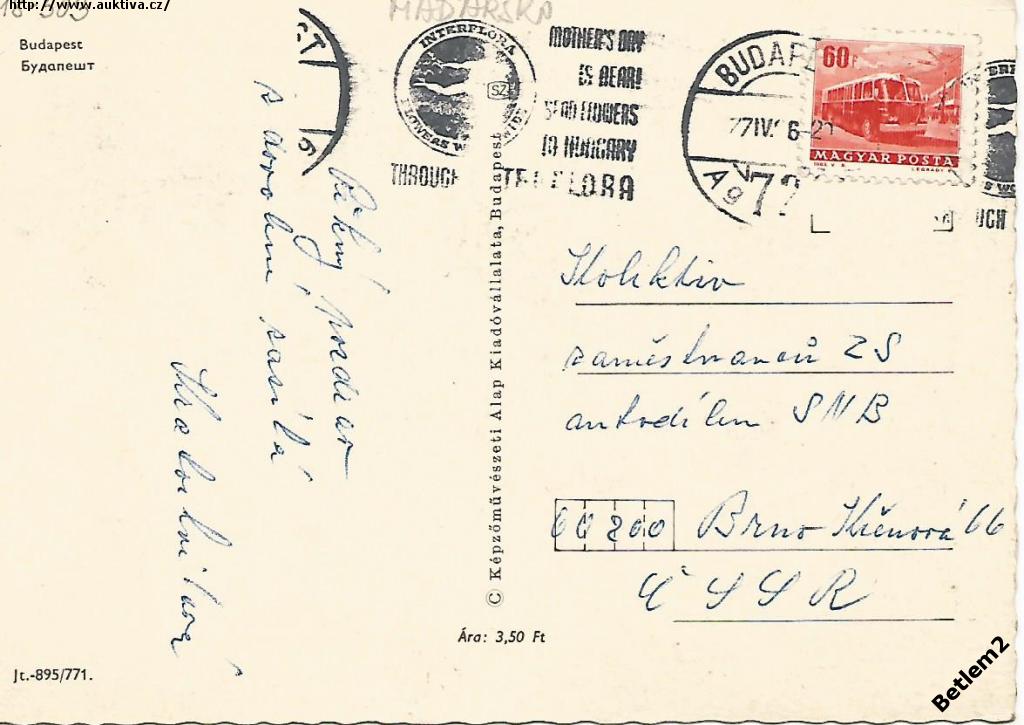 http://www.auktiva.cz/
MAĎARSKO
Budapest
Будапешт
INTERFLORA
FLOWERS WORLDWIDE
SZ
MOTHER'S DAY
IS NEAR!
SEND FLOWERS
TO HUNGARY
THROUGH INTERFLORA
BUDAPEST
72
60f
MAGYAR POSTA
Pěkný pozdrav
z dovolené zasílá
© Képzőművészeti Alap Kiadóvállalata, Budapest
Kolektiv
zaměstnanců ZS
autodílen SNB
60200 Brno Křenová 66
ČSSR
Ára: 3,50 Ft
Jt.-895/771.
Betlem2